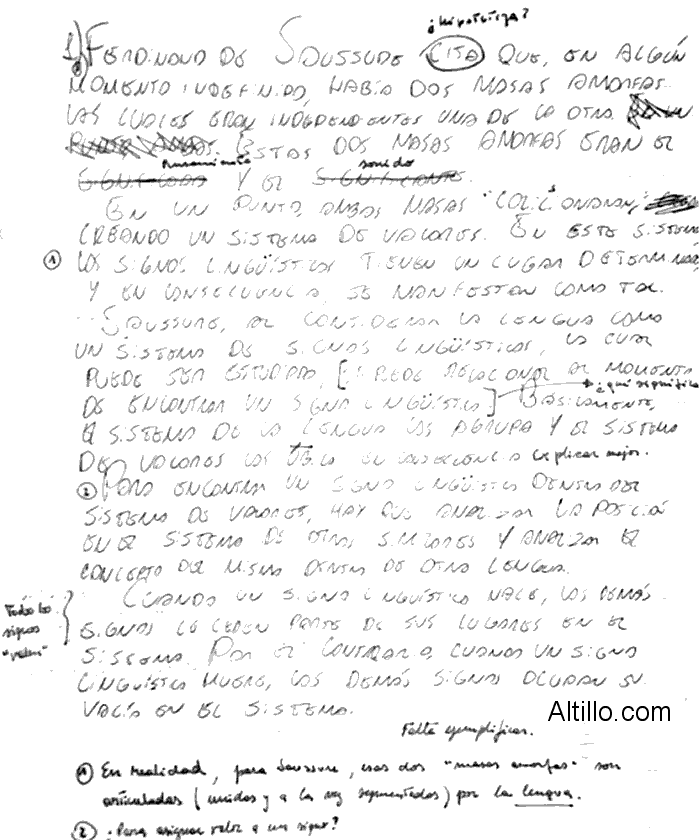 ¿Hipotetiza?
1) FERDINAND DE SAUSSURE CITA QUE, EN ALGÚN
MOMENTO INDEFINIDO, HABÍA DOS MASAS AMORFAS
LAS CUALES ERAN INDEPENDIENTES UNA DE LA OTRA.
ESTAS DOS MASAS AMORFAS ERAN EL
Pensamiento sonido
SIGNIFICADO Y EL SIGNIFICANTE.
EN UN PUNTO, AMBAS MASAS "COLICIONARON",
CREANDO UN SISTEMA DE VALORES. EN ESTE SISTEMA
① LOS SIGNOS LINGÜÍSTICOS TIENEN UN LUGAR DETERMINADO
Y EN CONSECUENCIA, SE MANIFIESTAN COMO TAL.
SAUSSURE, AL CONSIDERAR LA LENGUA COMO
UN SISTEMA DE SIGNOS LINGÜÍSTICOS, LA CUAL
PUEDE SER ESTUDIADA, [ PUEDE RELACIONAR AL MOMENTO
¿qué significa
DE ENCONTRAR UN SIGNO LINGÜÍSTICO] BÁSICAMENTE,
EL SISTEMA DE LA LENGUA LOS AGRUPA Y EL SISTEMA
DE VALORES LOS UBICA EN CONSECUENCIA explicar mejor.
② PARA ENCONTRAR UN SIGNO LINGÜÍSTICO DENTRO DEL
SISTEMA DE VALORES, HAY QUE ANALIZAR LA POSICIÓN
EN EL SISTEMA DE OTROS SIMILARES Y ANALIZAR EL
CONCEPTO DEL MISMO DENTRO DE OTRA LENGUA.
CUANDO UN SIGNO LINGÜÍSTICO NACE, LOS DEMÁS
Todos los
signos
"valen"
SIGNOS LE CEDEN PARTE DE SUS LUGARES EN EL
SISTEMA. POR EL CONTRARIO, CUANDO UN SIGNO
LINGÜÍSTICO MUERE, LOS DEMÁS SIGNOS OCUPAN SU
VACÍO EN EL SISTEMA.
Altillo.com
Falta ejemplificar.
① En realidad, para Saussure, esas dos "masas amorfas" son
articuladas (unidas y a la vez segmentadas) por la lengua.
② ¿Para asignar valor a un signo?